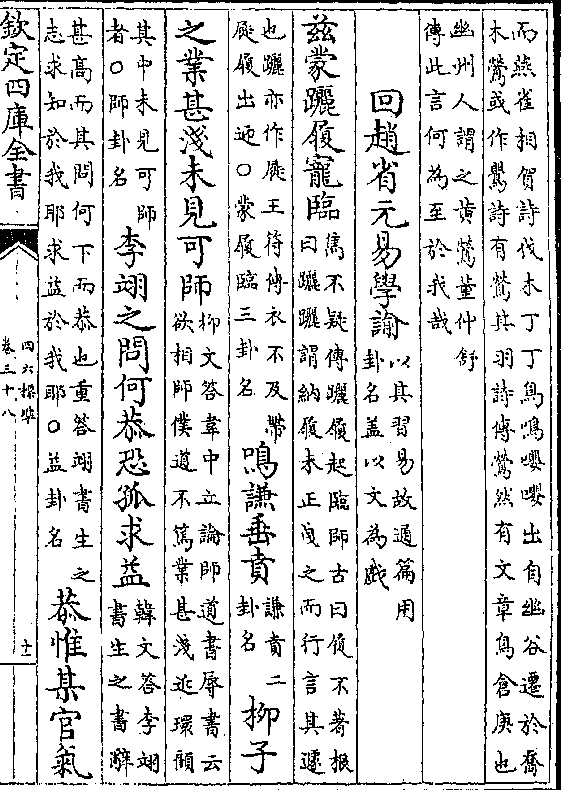 而燕雀相賀詩伐木丁丁鳥鳴嚶嚶出自幽谷遷於喬
木鶯或作鸎詩有鶯其羽詩傳鶯然有文章鳥倉庚也
幽州人謂之黄鶯董仲舒
傳此言何為至於我哉
回趙省元易學諭
以其習易故通篇用
卦名盖以文為戲
兹蒙躧履寵臨
雋不疑傳躧履起臨師古曰履不著根
曰躧躧謂納履未正曵之而行言其遽
也躧亦作屣王符傳衣不及帶
屣履出迎○蒙履臨三卦名
鳴謙垂賁
謙賁二
卦名
柳子
之業甚淺未見可師
柳文答韋中立論師道書辱書云
欲相師僕道不篤業甚淺近環顧
其中未見可師
者○師卦名
李翊之問何恭恐孤求益
韓文答李翊
書生之書辭
甚髙而其問何下而恭也重答翊書生之
志求知於我耶求益於我耶○益卦名
恭惟某官氣
欽定四庫全書
四六標準
卷三十八
十一